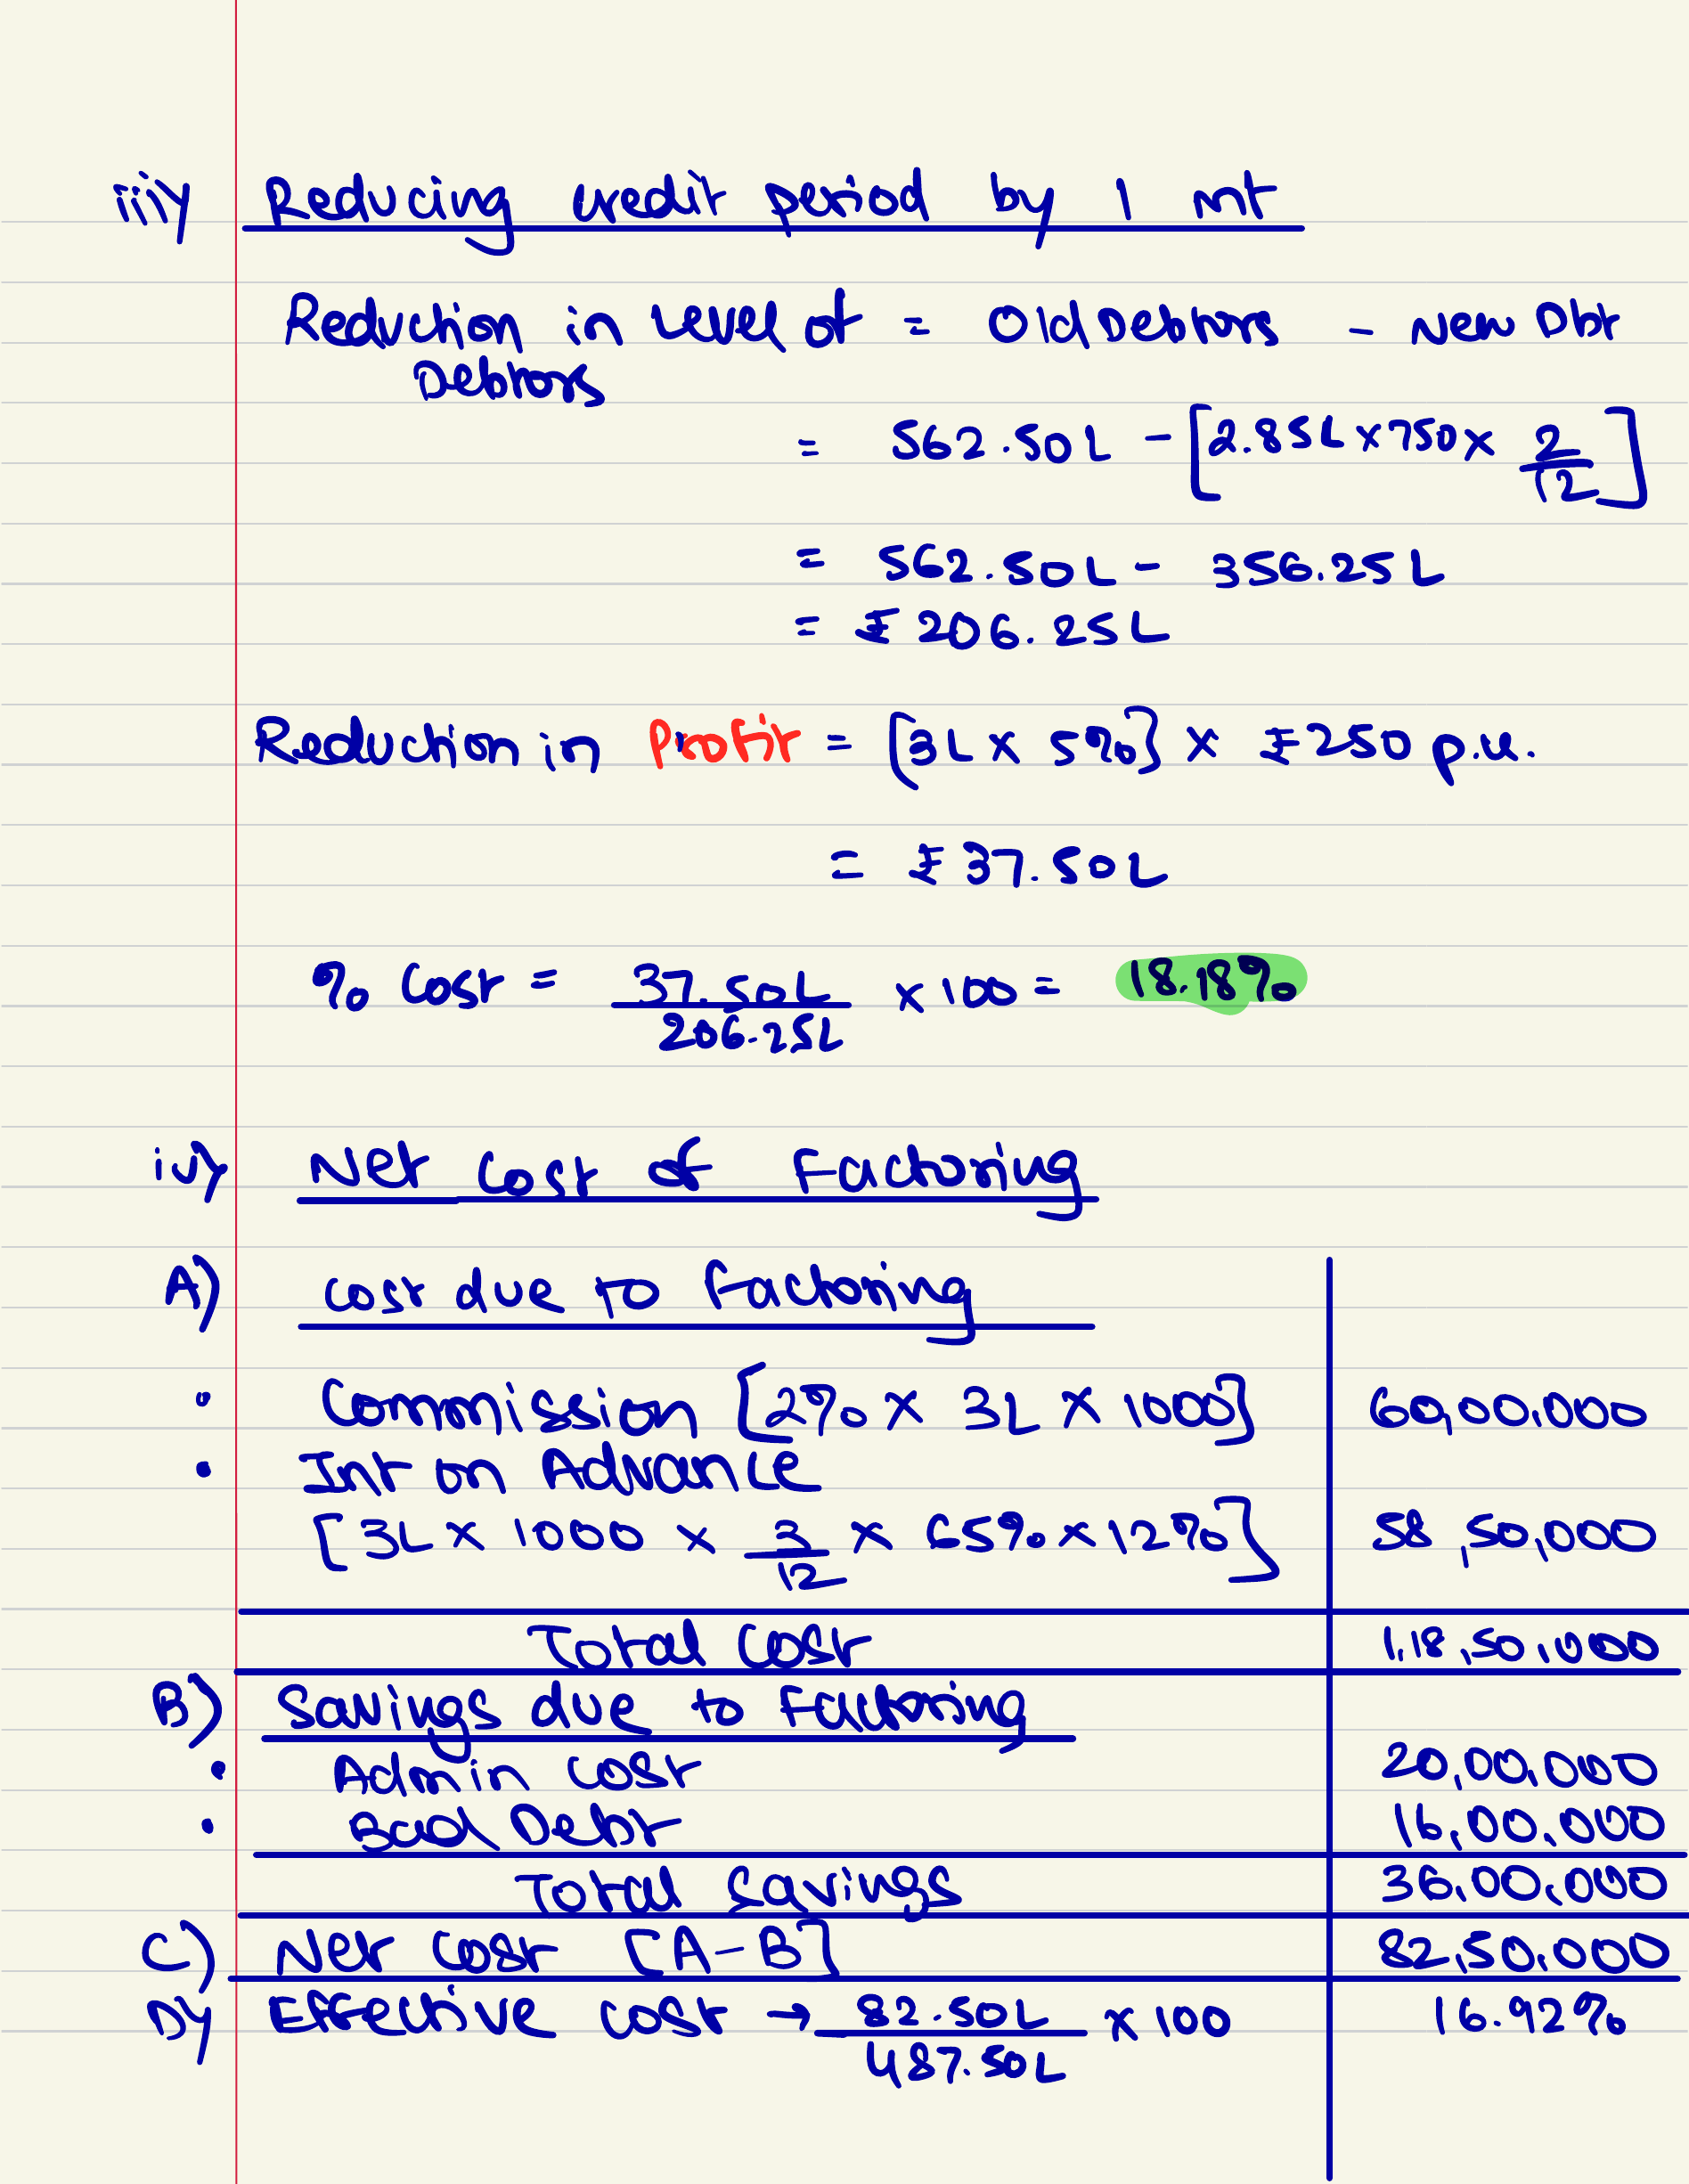 iii) Reducing credit period by 1 mt
Reduction in Level of = Old Debtors - New Dbt
Debtors
= 562.50L - [2.85L x 750 x 2/12]
= 562.50L - 356.25L
= ₹206.25L
Reduction in Profit = [3L x 5%] x ₹250 p.u.
= ₹37.50L
% Cost = 37.50L/206.25L x 100 = 18.18%
iv) Net Cost of Factoring
A) Cost due to Factoring
• Commission [2% x 3L x 1000] 60,00,000
• Int on Advance
[3L x 1000 x 3/12 x 65% x 12%] 58,50,000
Total Cost 1,18,50,000
B) Savings due to Factoring
• Admin Cost 20,00,000
• Bad Debt 16,00,000
Total Savings 36,00,000
C) Net Cost [A-B] 82,50,000
D) Effective Cost → 82.50L/487.50L x 100 16.92%